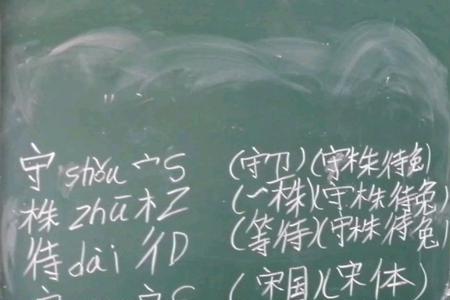 守 shǒu 宀S (守卫)(守株待兔)
株 zhū 木Z (一株)(守株待兔)
待 dài 彳D (等待)(守株待兔)
(宋国)(宋体)